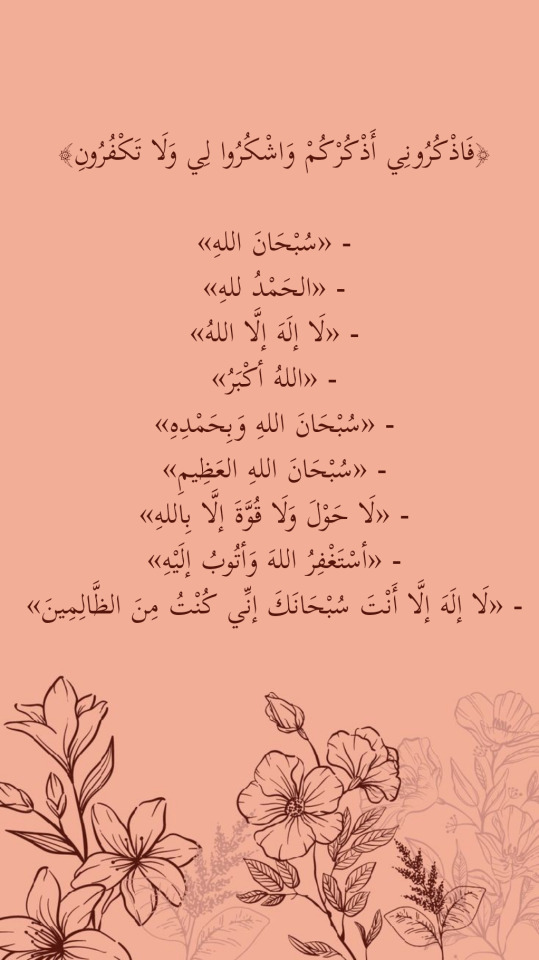 ﴿فَاذْكُرُونِي أَذْكُرْكُمْ وَاشْكُرُوا لِي وَلَا تَكْفُرُونِ﴾
- «سُبْحَانَ اللهِ»
- «الحَمْدُ للهِ»
- «لَا إلَهَ إلَّا اللهُ»
- «اللهُ أكْبَرُ»
- «سُبْحَانَ اللهِ وَبِحَمْدِهِ»
- «سُبْحَانَ اللهِ العَظِيمِ»
- «لَا حَوْلَ وَلَا قُوَّةَ إلَّا بِاللهِ»
- «أسْتَغْفِرُ اللهَ وَأتُوبُ إلَيْهِ»
- «لَا إلَهَ إلَّا أَنْتَ سُبْحَانَكَ إنِّي كُنْتُ مِنَ الظَّالِمِينَ»